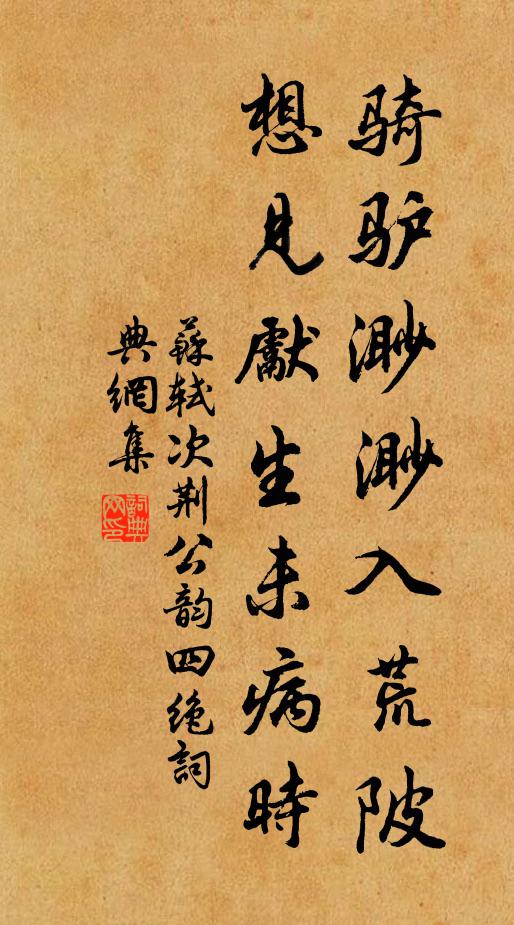 骑驴渺渺入荒陂
想见獻生未病時
蘇轼次荆公韵四绝詞
典網集
詞典網印